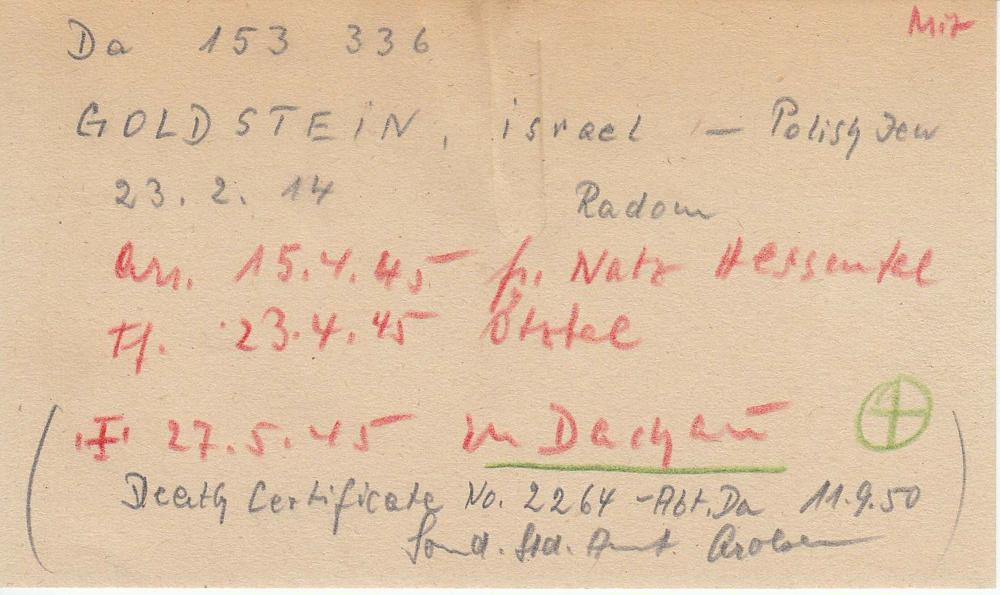 Da 153 336
GOLDSTEIN, Israel — Polish Jew
23. 2. 14 Radom
arr. 15.4.45 fr. Natz Hessental
tf. 23.4.45 Ötztal
27.5.45 in Dachau
(Death Certificate No. 2264 - Abt. Da 11.9.50
Sond. Std. Amt. Arolsen)